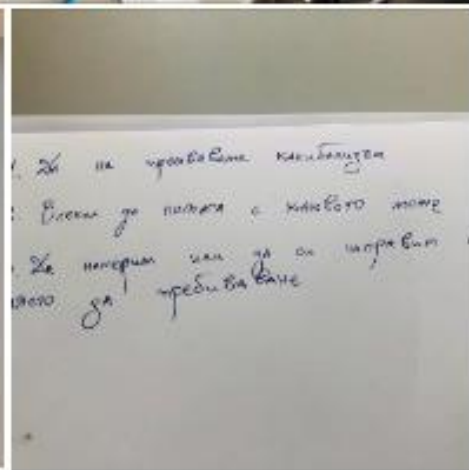 1. Да не проявяваме канибализъм
2. Всеки да помага с каквото може
3. Да намерим или да си направим
място да пребиваваме